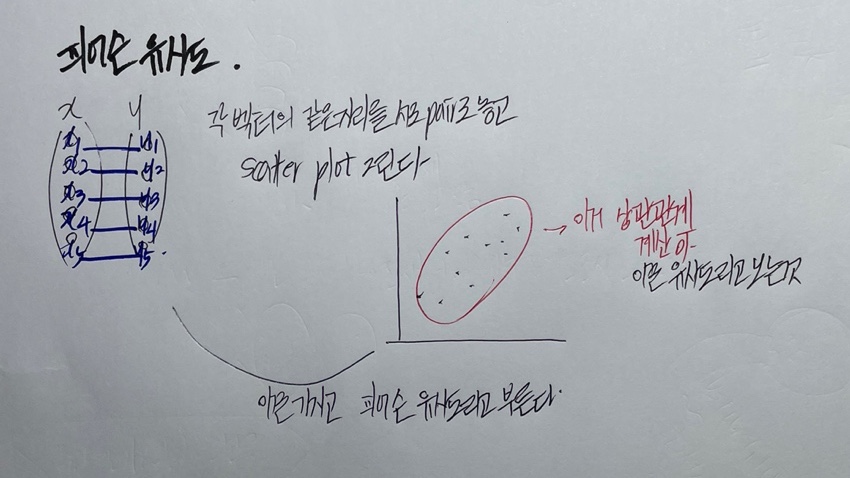 피어슨 유사도.
x y
x1 y1
x2 y2
x3 y3
x4 y4
x5 y5
각 벡터의 같은자리를 서로 pair로 놓고
scatter plot 그린다
→ 이거 상관관계
계산 후
이를 유사도라고 보는것
이를 가지고 피어슨 유사도라고 부른다.